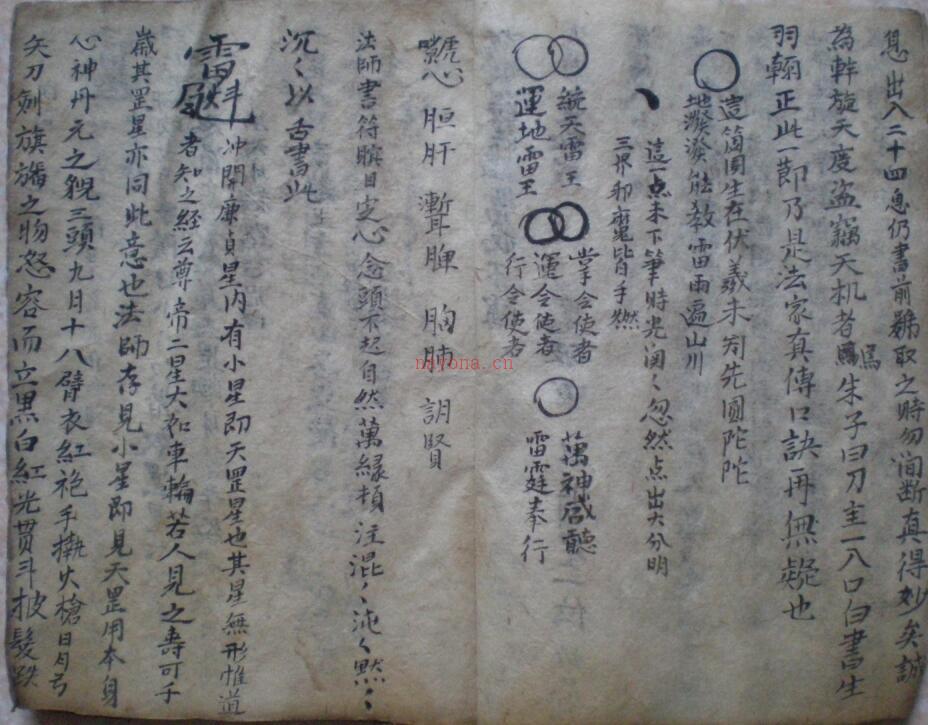 息出入二十四息仍書前號取之時勿間斷真得妙矣誠
為斡旋天度盗竊天机者焉朱子曰刀主一八口白書生
羽翰正此一節乃是法家真傳口訣再無疑也
這箇圓生在伏羲未判先圓陀陀
地潑潑能教雷雨遍山川
這一点未下筆時光闪〻忽然点出大分明
三界邪魔皆手燃
統天雷王
運地雷王
掌令使者
運令使者
行令使者
萬神咸聽
雷霆奉行
心 胆肝 脾 胸肺 腎
法師書符瞑目定心念頭不起自然萬緣頓注混〻沌〻默〻
沉〻以舌書此
雷
冲開廉貞星内有小星即天罡星也其星無形惟道
者知之經云尊帝二星大如車輪若人見之壽可千
歲其罡星亦同此意也法師存見小星即見天罡用本身
心神丹元之貌三頭九目十八臂衣紅袍手執火槍日月弓
矢刀劍旗旛之物怒容而立黑白紅光贯斗披髮跌
nayona.cn